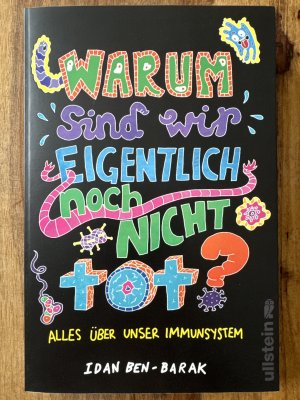 WARUM
sind wir
EIGENTLICH
noch
NICHT
tot?
ALLES ÜBER UNSER IMMUNSYSTEM
IDAN BEN-BARAK
ullstein